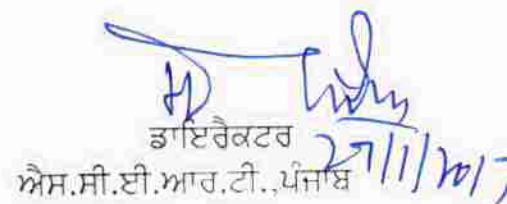 ਡਾਇਰੈਕਟਰ
ਐਸ.ਸੀ.ਈ.ਆਰ.ਟੀ.,ਪੰਜਾਬ
27/1/2017